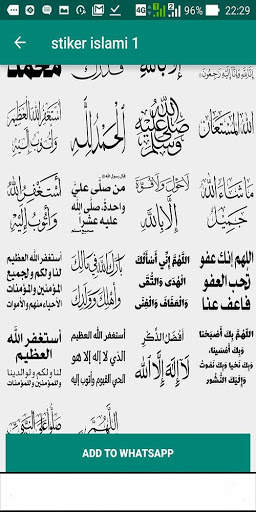 22:29
96%
stiker islami 1
إنا لله وإنا إليه راجعون
إلا بالله
محمد
الله المستعان
صلى الله
عليه
وسلم
الحمد لله
أستغفر الله العظيم
وأتوب إليه
ما شاء الله
جميل
لا حول ولا قوة
إلا بالله
قال رسول الله ﷺ
من صلى علي
واحدة، صلى الله
عليه عشرا
صحيح مسلم
أستغفر الله
وأتوب إليه
اللهم إنك عفو
تحب العفو
فاعف عنا
اللهم إني أسألك
الهدى والتقى
والعفاف والغنى
بارك الله لك في مالك
وأهلك وولدك
أستغفر الله العظيم
لنا ولكم ولجميع
المؤمنين والمؤمنات
الأحياء منهم والأموات
اللهم بك أصبحنا
وبك أمسينا،
وبك نحيا وبك نموت
وإليك النشور
أفضل الذكر
لا إله إلا الله
أستغفر الله العظيم
الذي لا إله إلا هو
الحي القيوم وأتوب إليه
أستغفر الله
العظيم
لنا ولكم ولوالدينا
وللمؤمنين والمؤمنات
اللهم
صلوا على النبي
ADD TO WHATSAPP